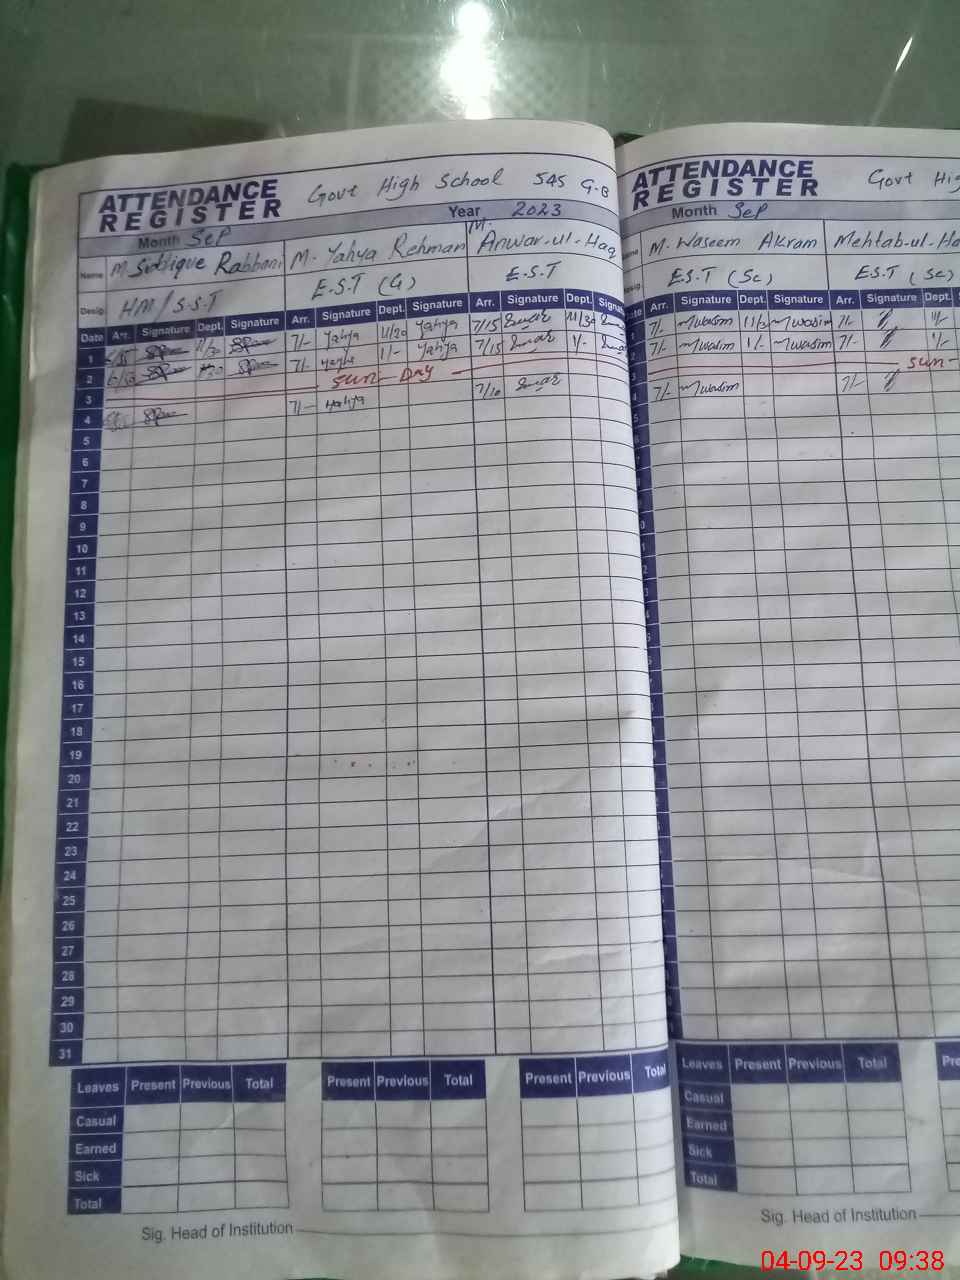 ATTENDANCE REGISTER Govt High School 545 G-B
Month Sep Year 2023
Name M. Siddique Rabbani M. Yahya Rehman M. Anwar-ul-Haq
Desig. HM/S.S.T E.S.T (G) E.S.T
Date Arr. Signature Dept. Signature Arr. Signature Dept. Signature Arr. Signature Dept. Signature
1 11/30 7/- Yahya 11/30 Yahya 7/15 Anwar 11/30 Anwar
2 6/50 7/- Yahya 1/- Yahya 7/15 Anwar 1/- Anwar
3 Sun - Day
4 7/- Yahya 7/10 Anwar
5
6
7
8
9
10
11
12
13
14
15
16
17
18
19
20
21
22
23
24
25
26
27
28
29
30
31
Leaves Present Previous Total Present Previous Total Present Previous Total
Casual
Earned
Sick
Total
Sig. Head of Institution
ATTENDANCE REGISTER Govt
Month Sep
M. Waseem Akram Mehtab-ul-
E.S.T (Sc) E.S.T (Sc)
Arr. Signature Dept. Signature Arr. Signature Dept.
7/- Mwasim 11/3 Mwasim 7/- 11/-
7/- Mwasim 1/- Mwasim 7/- 1/-
Sun -
7/- Mwasim 7/-
Leaves Present Previous Total
Casual
Earned
Sick
Total
Sig. Head of Institution
04-09-23 09:38